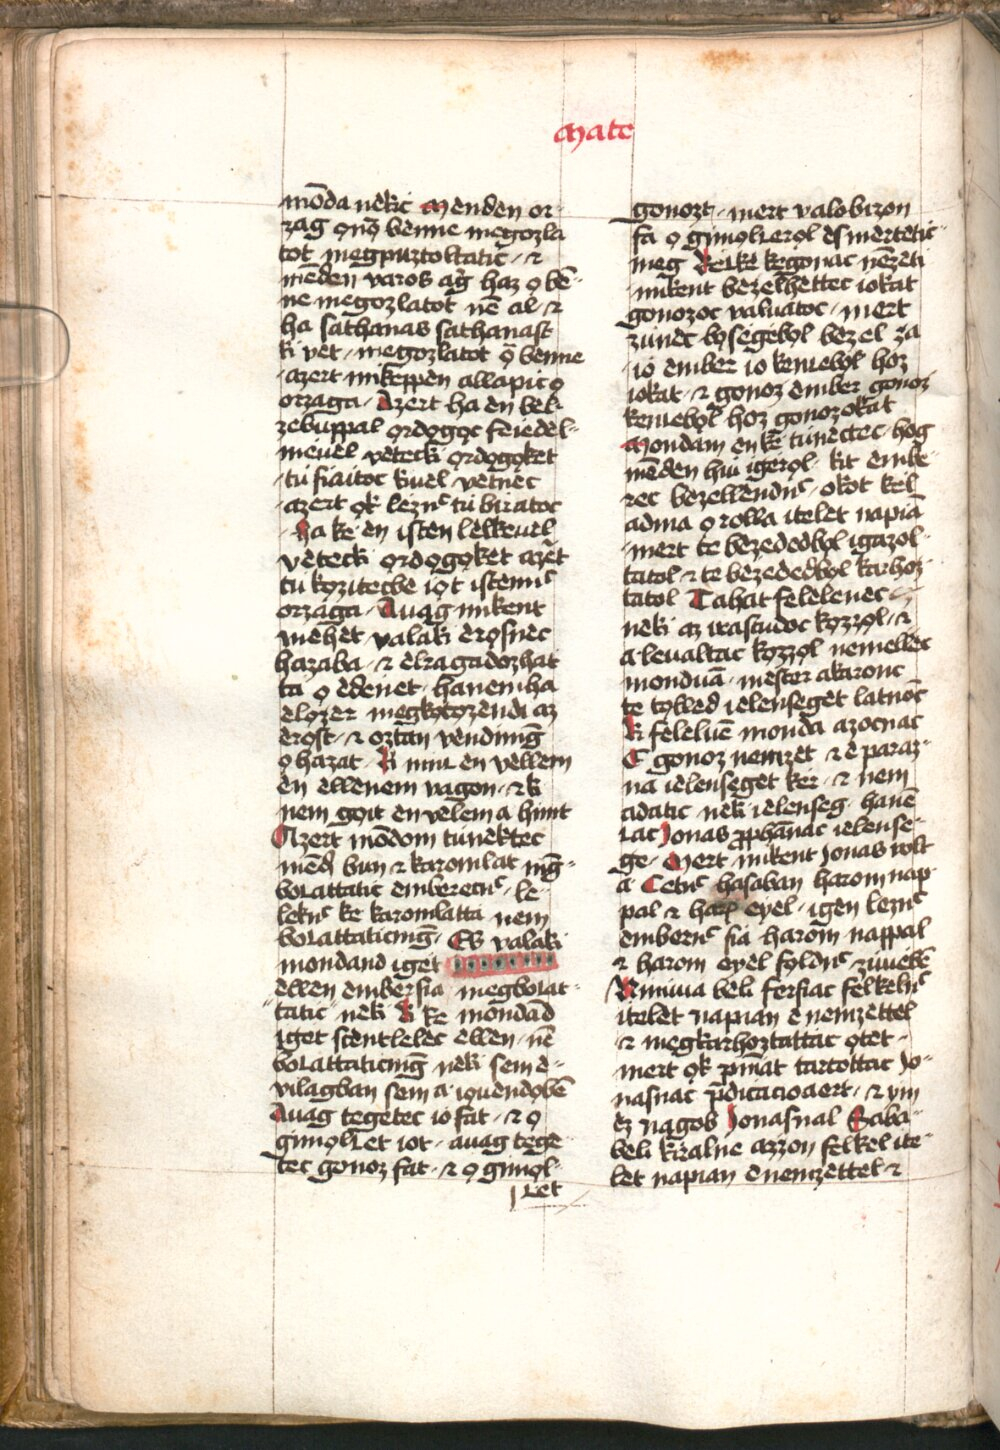 mate
mōda nèkic Menden or-
zag ȯnȱ benne megozla
tot megpuztoltatic · ⁊
mēden varos aġ haz ȯ bē-
ne megozlatot nē al · ⁊
ha sathanas sathanast
ki vèt · megozlatot ȱ benne
azert mikeppen allapic ȯ
orzaga · Azert ha en bel-
zebuppal ordȯgȯc feiedel-
meuèl vètecki ordȯgȯket
tū fiaitoc kiuèl · vètnèc
azert ȯk leznc tū biratoc
Ha ke èn isten lèlkeuèl
vètecki ordȯgȯket azèt
tū kozitecbe iȯt istennc
orzaga · Auaġ mikent
mehèt valaki èrȯsnèc
hazaba · ⁊ èlragadozhat
ta ȯ èdènèt · hanèmha
èlȯzèr megkȯtȯzèndi az
èrȯst · ⁊ oztan vèndi mīḡ
ȯ hazat · Ki nincz en vèllem
èn èllenèm vagon · ⁊ ki
nem goit en vèlem a hinit
Azert mōdom tūnèktec
mēd̄ bun ⁊ karomlat mēḡ-
boĺattatic èmberecnc · le-
leknc ke karomlatta nèm
boĺattaticmēḡ · Es valaki
mondand iget
èllen èmbèrfia megboĺat-
tatic nèki Ki ke mondād
iget scèntlèlèc èllen · nē
boĺattaticmēḡ nèki sem è-
vilagban sem a iouendȯbē
Auag tegètec io fat · ⁊ ȯ
gimȯlt́et iot · auag tege-
tec gonoz fat · ⁊ ȯ gimȯl-
t́et
gonozt · mert valobizon
fa ȯ gimȯlt́erȯl èsmèrtètic
meg Kèikè kegonac nēzèti
mikènt bezèlhettec iokat
gonozoc valuatoc · mert
zūnèc bȯsegebȯl bezèl za
io èmber io kenčebȯl hoz
iokat · ⁊ gonoz èmber gonoz
kenčebȯl hoz gonozokat
Mondam èn kè tūnèctec · hog
mēden hiu igerȯl · kit èmbè-
rec bezèllèndnc · okot kèl
adnia ȯ rolla itelèt napiā
mert te bezèdèdbȯl igazol-
tatol ⁊ te bezèdèdbȯl karhoz
tatol Tahat felelènèc
nèki az irastudoc kȯzzȯl · ⁊
a leualtac kȯzzȯl nèmellèc
monduā · mester akaronc
te tȯlled ièlenseget latnōc
Ki felèluē monda azocnac
E gonoz nèmzèt ⁊ è paraz-
na ièlenseget kèr · ⁊ nèm
adatic nèki ièlenseg · hanē
čac Jonas ꝓphanac ièlense-
ge · Mert mikent Jonas volt
a Cetnc hasaban haromnap-
pal ⁊ har̄ eyel · igen leznc
èmbernc fia harom nappal
⁊ harom eyel fȯldnc zūuebē
Niniua beli ferfiac felkèlnc
itelet napian è nèmzèttel
⁊ megkarhoztattac ȯtet ·
mert ȯk pīnāt tartottac Jo-
nasnac pdicacioaert · ⁊ ým
èz nagob Jonasnal Saba-
beli kiralne azzon felkèl ite-
let napian è nèmzèttel · ⁊